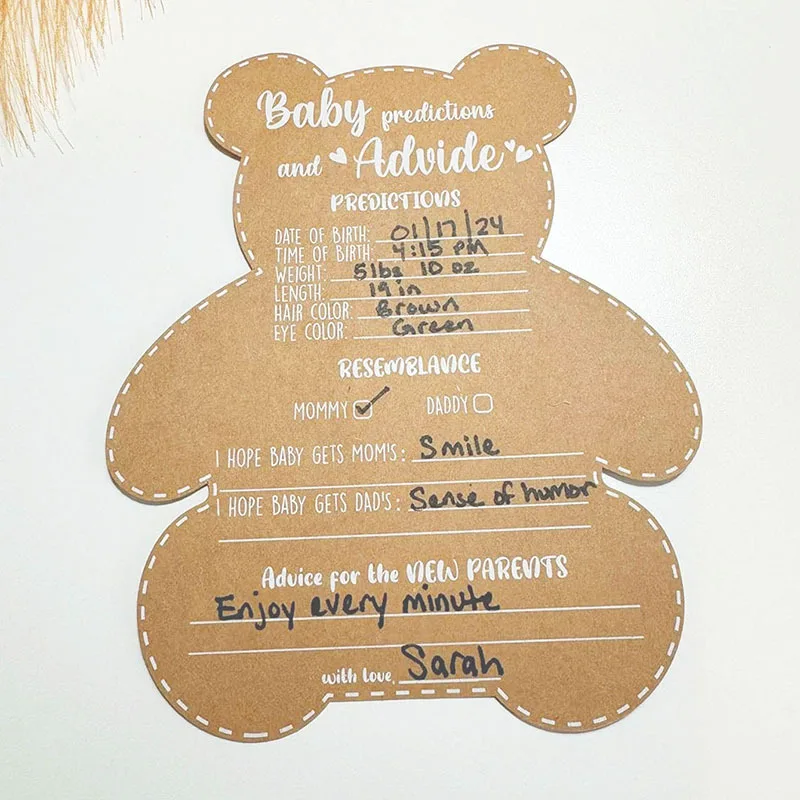 Baby predictions
and Advide
PREDICTIONS
DATE OF BIRTH: 01/17/24
TIME OF BIRTH: 4:15 pm
WEIGHT: 5lbs 10 oz
LENGTH: 19 in
HAIR COLOR: Brown
EYE COLOR: Green
RESEMBLANCE
MOMMY DADDY
I HOPE BABY GETS MOM'S: Smile
I HOPE BABY GETS DAD'S: Sense of humor
Advice for the NEW PARENTS
Enjoy every minute
with love, Sarah